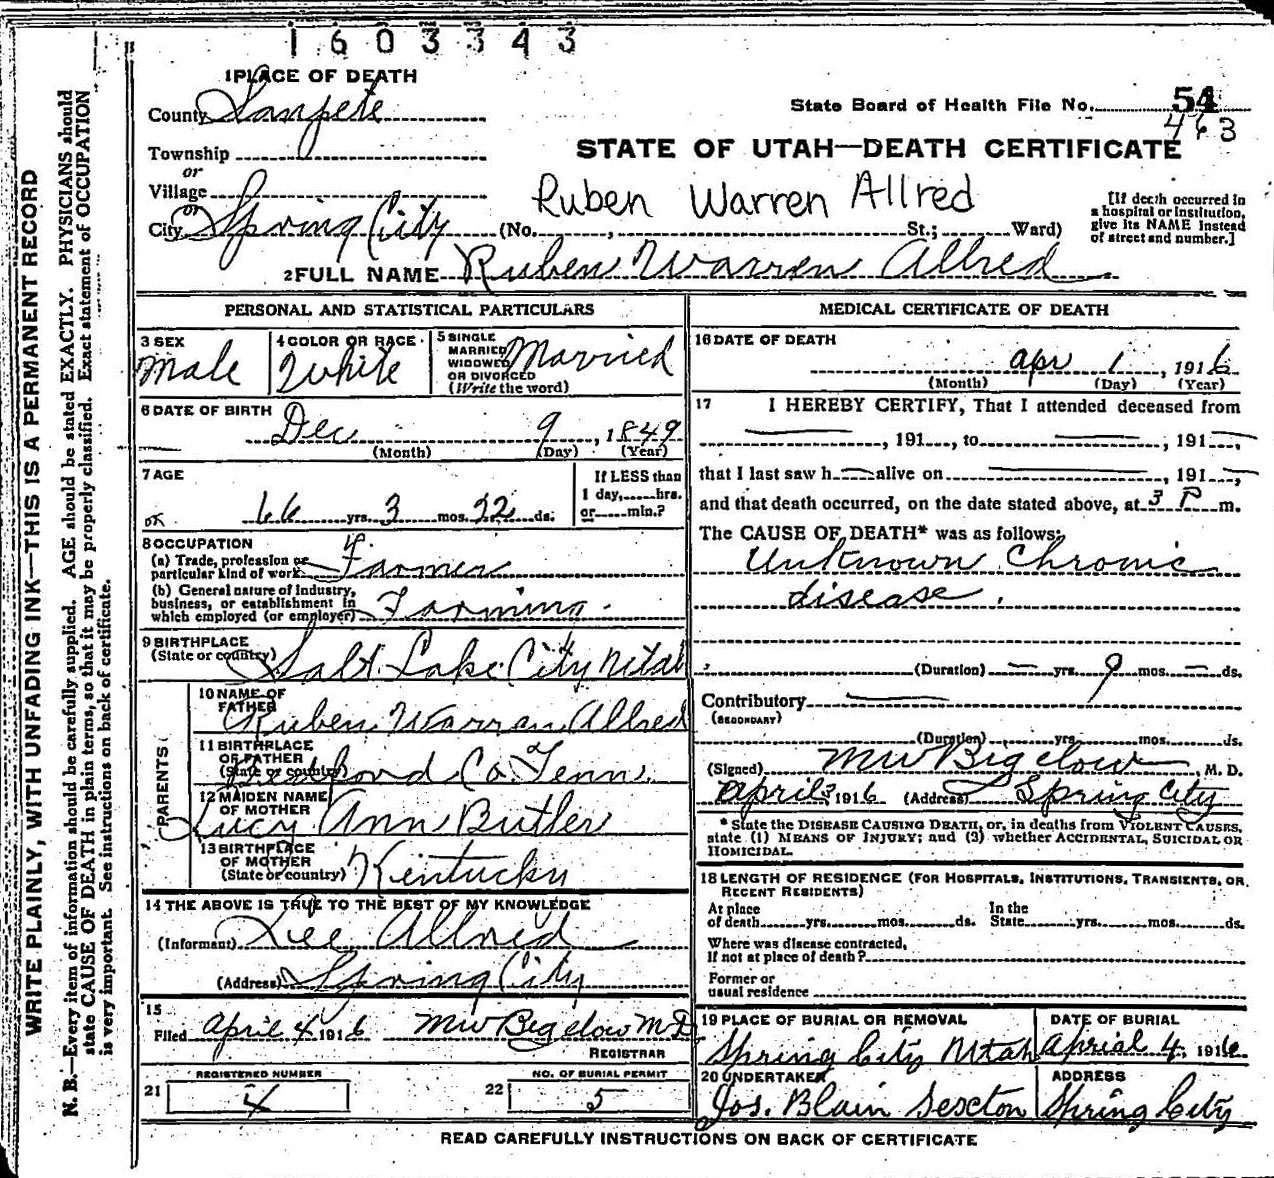 1603343
1 PLACE OF DEATH
County Sanpete
State Board of Health File No. 54
463
Township
or
Village
or
City Spring City (No. , St.; Ward)
STATE OF UTAH—DEATH CERTIFICATE
Ruben Warren Allred
[If death occurred in
a hospital or institution,
give its NAME instead
of street and number.]
2 FULL NAME Ruben Warren Allred
PERSONAL AND STATISTICAL PARTICULARS
3 SEX
Male
4 COLOR OR RACE
White
5 SINGLE
MARRIED
WIDOWED
OR DIVORCED
(Write the word)
Married
6 DATE OF BIRTH
Dec 9, 1849
(Month) (Day) (Year)
7 AGE
66 yrs. 3 mos. 22 ds.
If LESS than
1 day, hrs.
or min.?
8 OCCUPATION
(a) Trade, profession or
particular kind of work Farmer
(b) General nature of industry,
business, or establishment in
which employed (or employer) Farming.
9 BIRTHPLACE
(State or country) Salt Lake City Utah
PARENTS
10 NAME OF
FATHER Ruben Warran Allred
11 BIRTHPLACE
OF FATHER
(State or country) Co. Tenn.
12 MAIDEN NAME
OF MOTHER Lucy Ann Butler
13 BIRTHPLACE
OF MOTHER
(State or country) Kentucky
14 THE ABOVE IS TRUE TO THE BEST OF MY KNOWLEDGE
(Informant) Lee Allred
(Address) Spring City
15
Filed April 4 1916 MW Bigelow MD
REGISTRAR
21 REGISTERED NUMBER
4
22 NO. OF BURIAL PERMIT
5
MEDICAL CERTIFICATE OF DEATH
16 DATE OF DEATH
Apr 1, 1916
(Month) (Day) (Year)
17 I HEREBY CERTIFY, That I attended deceased from
—, 191—, to —, 191—,
that I last saw h— alive on —, 191—,
and that death occurred, on the date stated above, at 3 P m.
The CAUSE OF DEATH* was as follows:
Unknown Chronic
disease.
(Duration) — yrs. 9 mos. — ds.
Contributory —
(SECONDARY)
(Duration) yrs. mos. ds.
(Signed) MW Bigelow, M. D.
April 3 1916 (Address) Spring City
* State the DISEASE CAUSING DEATH, or, in deaths from VIOLENT CAUSES,
state (1) MEANS OF INJURY; and (2) whether ACCIDENTAL, SUICIDAL OR
HOMICIDAL.
18 LENGTH OF RESIDENCE (FOR HOSPITALS, INSTITUTIONS, TRANSIENTS, OR
RECENT RESIDENTS)
At place
of death yrs. mos. ds.
In the
State yrs. mos. ds.
Where was disease contracted,
If not at place of death?
Former or
usual residence
19 PLACE OF BURIAL OR REMOVAL
Spring City Utah
DATE OF BURIAL
Aprial 4, 1916
20 UNDERTAKER
Jos. Blain Sexcton
ADDRESS
Spring City
READ CAREFULLY INSTRUCTIONS ON BACK OF CERTIFICATE
WRITE PLAINLY, WITH UNFADING INK—THIS IS A PERMANENT RECORD
N. B.—Every item of information should be carefully supplied. AGE should be stated EXACTLY. PHYSICIANS should
state CAUSE OF DEATH in plain terms, so that it may be properly classified. Exact statement of OCCUPATION
is very important. See instructions on back of certificate.